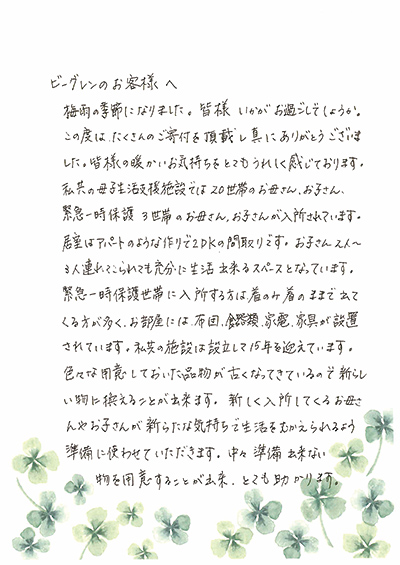 ビーグレンのお客様へ
梅雨の季節になりました。皆様 いかがお過ごしでしょうか。
この度は、たくさんのご寄付を頂戴し真にありがとうございま
した。皆様の暖かいお気持ちをとてもうれしく感じております。
私共の母子生活支援施設では20世帯のお母さん、お子さん、
緊急一時保護 3世帯のお母さん、お子さんが入所されています。
居室はアパートのような作りで2DKの間取りです。お子さん2人〜
3人連れてこられても充分に生活出来るスペースとなっています。
緊急一時保護世帯に入所する方は、着のみ着のままで出て
くる方が多く、お部屋には、布団、食器類、家電、家具が設置
されています。私共の施設は設立して15年を迎えています。
色々な用意しておいた品物が古くなってきているので新らし
い物に換えることが出来ます。新しく入所してくるお母さ
んやお子さんが新らたな気持ちで生活をむかえられるよう
準備に使わせていただきます。中々準備出来ない
物を用意することが出来、とても助かります。